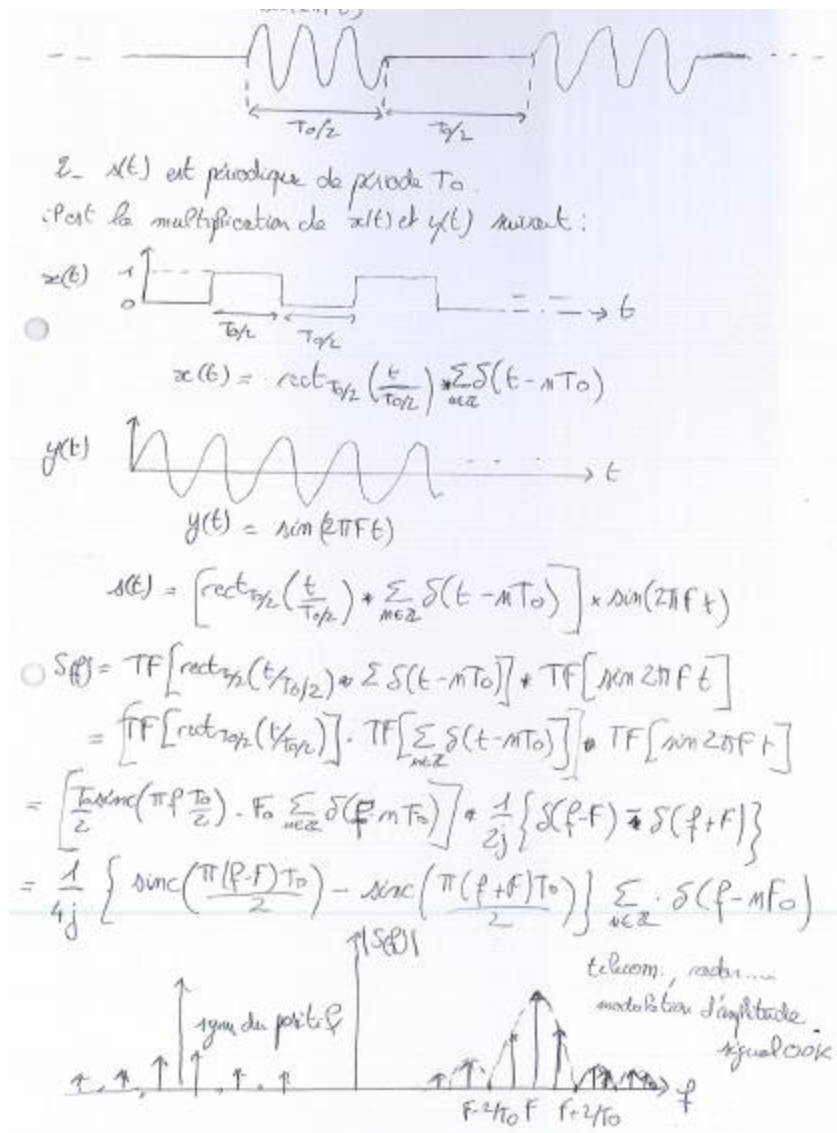 sin(2πFt)
T₀/2 T₀/2
2- s(t) est périodique de période T₀.
C'est la multiplication de x(t) et y(t) suivant :
x(t) 1
0 T₀/2 T₀/2 t
x(t) = rect_{T₀/2} (t/(T₀/2)) * Σ_{n∈ℤ} δ(t - nT₀)
y(t) t
y(t) = sin(2πFt)
s(t) = [rect_{T₀/2} (t/(T₀/2)) * Σ_{n∈ℤ} δ(t - nT₀)] × sin(2πFt)
S(f) = TF[rect_{T₀/2}(t/T₀/2) * Σ δ(t - nT₀)] * TF[sin 2πFt]
= [TF[rect_{T₀/2}(t/T₀/2)] . TF[Σ_{n∈ℤ} δ(t - nT₀)]] * TF[sin 2πFt]
= [T₀/2 sinc(πf T₀/2) . F₀ Σ_{n∈ℤ} δ(f - nF₀)] * 1/2j {δ(f-F) - δ(f+F)}
= 1/4j { sinc(π(f-F)T₀/2) - sinc(π(f+F)T₀/2) } Σ_{n∈ℤ} . δ(f - nF₀)
|S(f)|
telecom., radar....
modulation d'amplitude.
signal OOK
sym du positif
f
F-2/T₀ F F+2/T₀